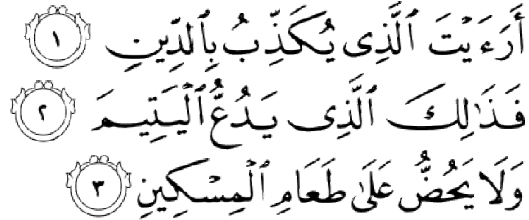 أَرَءَيْتَ ٱلَّذِى يُكَذِّبُ بِٱلدِّينِ ١
فَذَٰلِكَ ٱلَّذِى يَدُعُّ ٱلْيَتِيمَ ٢
وَلَا يَحُضُّ عَلَىٰ طَعَامِ ٱلْمِسْكِينِ ٣